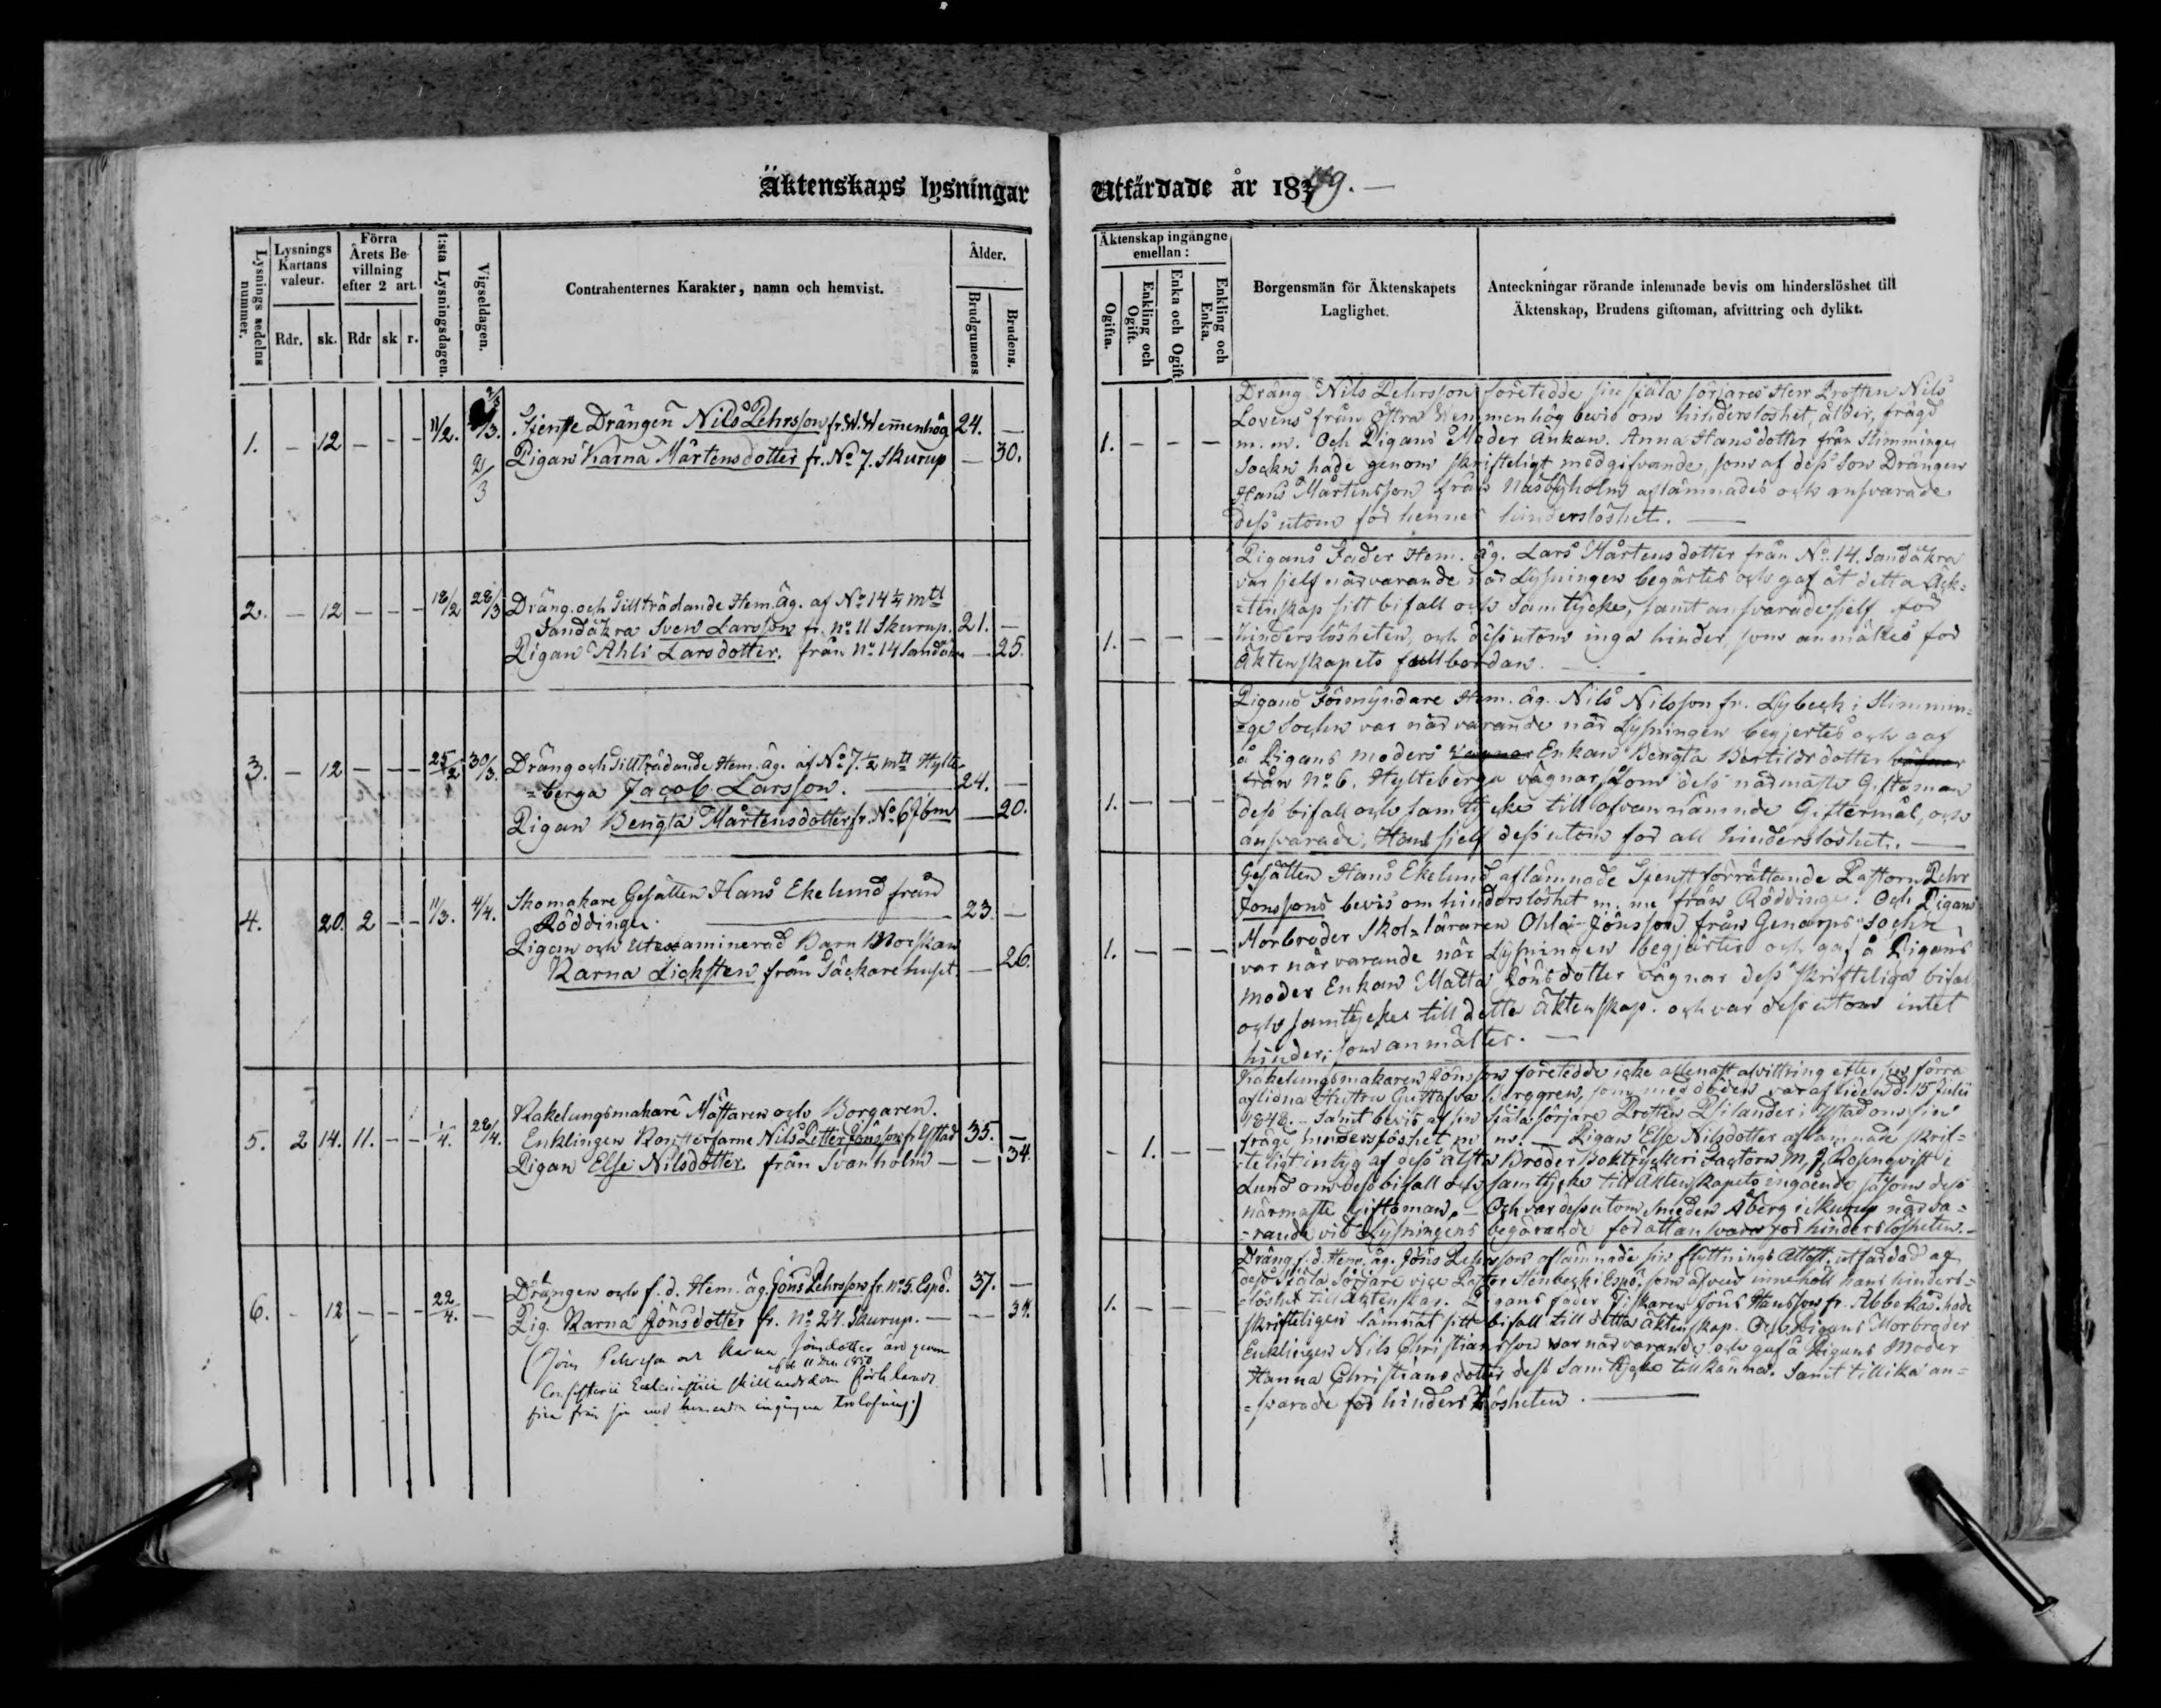 Äktenskaps lysningar
Utfärdade år 1849. —
Lysnings sedelns nummer.
Lysnings Kartans valeur.
Rdr. sk.
Förra Årets Bevillning efter 2 art.
Rdr sk r.
1:sta Lysningsdagen.
Vigseldagen.
Contrahenternes Karakter, namn och hemvist.
Ålder.
Brudgumens
Brudens.
1. — 12 — — — 11/2. 2/3
Tjenste Drängen Nils Pehrsson fr. W. Wemenhög 24. —
Pigan Karna Mårtensdotter fr. No 7. Skurup — 30.
2. — 12 — — — 18/2 28/3
Dräng och Tillträdande Hem. Äg. af No 14 1/4 mtl
Sandåkra Sven Larsson fr. No 11 Skurup. 21. —
Pigan Ahli Larsdotter. från No 14 Sandåkra — 25.
3. — 12 — — — 25/2 30/3.
Dräng och Tillträdande Hem. äg. af No 7. 1/2 mtl Hylte
=berga Jacob Larsson. 24. —
Pigan Bengta Mårtensdotter fr. No 6 Ibm — 20.
4. 20. 2 — — 11/3. 4/4.
Skomakare Gesällen Hans Ekelund från
Röddinge. 23. —
Pigan och Utexaminerad Barn Morskan
Karna Licksten från Säckarehuset. — 26.
5. 2 14. 11. — — 1/4. 28/4.
Kakelungsmakare Mästaren och Borgaren.
Enklingen Nils Petter Jönsson fr. Ystad 35. —
Pigan Else Nilsdotter från Svanholm — — 34.
6. — 12 — — — 22/4. —
Drängen och f. d. Hem. äg. Jöns Pehrsson fr. No 5. Espö. 37. —
Pig. Karna Jönsdotter fr. No 24. Skurup. — — 34.
(Jöns Pehrsson och Karna Jönsdotter äro genom
Consistorii Ecclesiastici skillnadsdom af d. 11 Dec 1850 förklarade
fria från sin med hvarandra ingångna trolofning.)
Äktenskap ingångne emellan:
Ogifta.
Enkling och Ogift.
Enka och Ogift
Enkling och Enka.
Borgensmän för Äktenskapets
Laglighet.
Anteckningar rörande inlemnade bevis om hinderslöshet till
Äktenskap, Brudens giftoman, afvittring och dylikt.
1. — — —
Dräng Nils Pehrsson företedde sin själasörjares Herr Prosten Nils
Lovens från Östra Wemmenhög bevis om hinderslöshet, ålder, frägd
m. m. Och Pigans Moder Änkan. Anna Hansdotter från Slimminge
Sockn hade genom skrifteligt medgifvande, som af dess Son Drängen
Hans Mårtensson från Näsbyholm aflämnades och ansvarade
dess utom för hennes hinderslöshet. —
1. — — —
Pigans Fader Hem. äg. Lars Mårtensdotter från No 14. Sandåkra
var sjelf närvarande när Lysningen begärtes och gaf åt detta Äck=
=tenskap sitt bifall och Samtycke, samt ansvarade sjelf för
hinderslösheten, och dess utom inga hinder, som anmältes för
Äktenskapets fullbordan. —
1. — — —
Pigans Förmyndare Hem. äg. Nils Nilsson fr. Lybeck i Slimmin=
=ge Sockn var närvarande när Lysningen begjertes och gaf
å Pigans moders Enkan Bengta Bertilsdotter
från No 6. Hylteberga vägnar, som dess närmaste Giftoman
dess bifall och samtycke till ofvannämnde Giftermål, och
ansvarade, Han sjelf dess utom för all hinderslöshet. —
1. — — —
Gesällen Hans Ekelund aflämnade Tjenstförrättande Pastorn Pehr
Jönssons bevis om hinderslöshet m. m. från Röddinge. Och Pigans
Morbroder Skol=läraren Ohla Jönsson från Genarps Sockn
var närvarande när Lysningen begjärtes och gaf å Pigans
moder Enkan Matta Jönsdotter vägnar dess skrifteliga bifal
och samtycke till detta Äktenskap. och var dess utom intet
hinder, som anmältes. —
— 1. — —
Kakelungsmakaren Jönsson företedde icke allenast afvittring efter sin förra
aflidna Hustru Gustafva Borggren, som med döden var afliden d. 15 Julii
1848. — Samt bevis af sin själasörjare Prosten Psilander i Ystad om sin
frägd hinderslöshet m. m. — Pigan Else Nilsdotter aflämnade skrif=
=teligt intyg af dess älsta Broder Boktryckeri Factorn M. J. Rosenqvist i
Lund om dess bifall och samtycke till Äktenskapets ingående såsom dess
närmaste Giftoman, — Och var dessutom Smeden Åberg i Skurup närva=
=rande vid Lysningens begärande för att ansvara för hinderslösheten. —
1. — —
Dräng f. d. Hem. äg. Jöns Pehrsson aflämnade sin flyttnings Attest utfärdad af
dess Själa Sörjare vice Pastor Stenbeck i Espö. som äfven innehöll hans hinders=
=löshet till Äktenskap. Pigans fader Fiskaren Jöns Hansson fr. Abbekås. hade
skrifteligen lämnat sitt bifall till detta äktenskap. Och Pigans Morbroder
Enklingen Nils Christiansson var närvarande och gaf å Pigans Moder
Hanna Christiansdotter dess Samtycke tillkänna. Samt tillika an=
=svarade för hinderslösheten. —